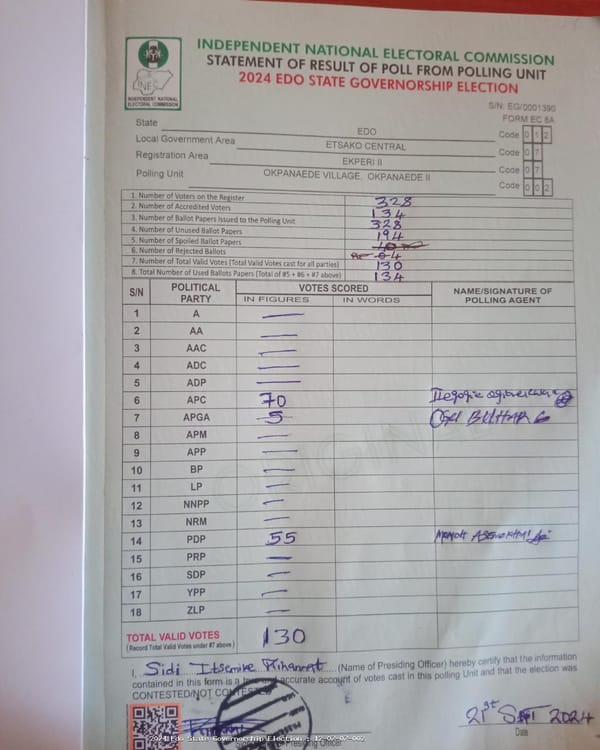 INDEPENDENT NATIONAL ELECTORAL COMMISSION
STATEMENT OF RESULT OF POLL FROM POLLING UNIT
2024 EDO STATE GOVERNORSHIP ELECTION
INEC
INDEPENDENT NATIONAL
ELECTORAL COMMISSION
S/N: EG/0001390
FORM EC 8A
State EDO Code 0 1 2
Local Government Area ETSAKO CENTRAL Code 0 7
Registration Area EKPERI II Code 0 7
Polling Unit OKPANAEDE VILLAGE, OKPANAEDE II Code 0 0 2
1. Number of Voters on the Register 328
2. Number of Accredited Voters 134
3. Number of Ballot Papers Issued to the Polling Unit 328
4. Number of Unused Ballot Papers 194
5. Number of Spoiled Ballot Papers
6. Number of Rejected Ballots 04
7. Number of Total Valid Votes (Total Valid Votes cast for all parties) 130
8. Total Number of Used Ballots Papers (Total of #5 + #6 + #7 above) 134
S/N POLITICAL PARTY VOTES SCORED NAME/SIGNATURE OF POLLING AGENT
IN FIGURES IN WORDS
1 A —
2 AA —
3 AAC —
4 ADC —
5 ADP —
6 APC 70
7 APGA 5
8 APM —
9 APP —
10 BP —
11 LP —
12 NNPP —
13 NRM —
14 PDP 55
15 PRP —
16 SDP —
17 YPP —
18 ZLP —
TOTAL VALID VOTES 130
(Record Total Valid Votes under #7 above)
I, Sidi (Name of Presiding Officer) hereby certify that the information
contained in this form is a true and accurate account of votes cast in this polling Unit and that the election was
CONTESTED/NOT CONTESTED
21st SEPT 2024
Date
Presiding Officer
2024 Edo State Governorship Election : 12-07-07-002